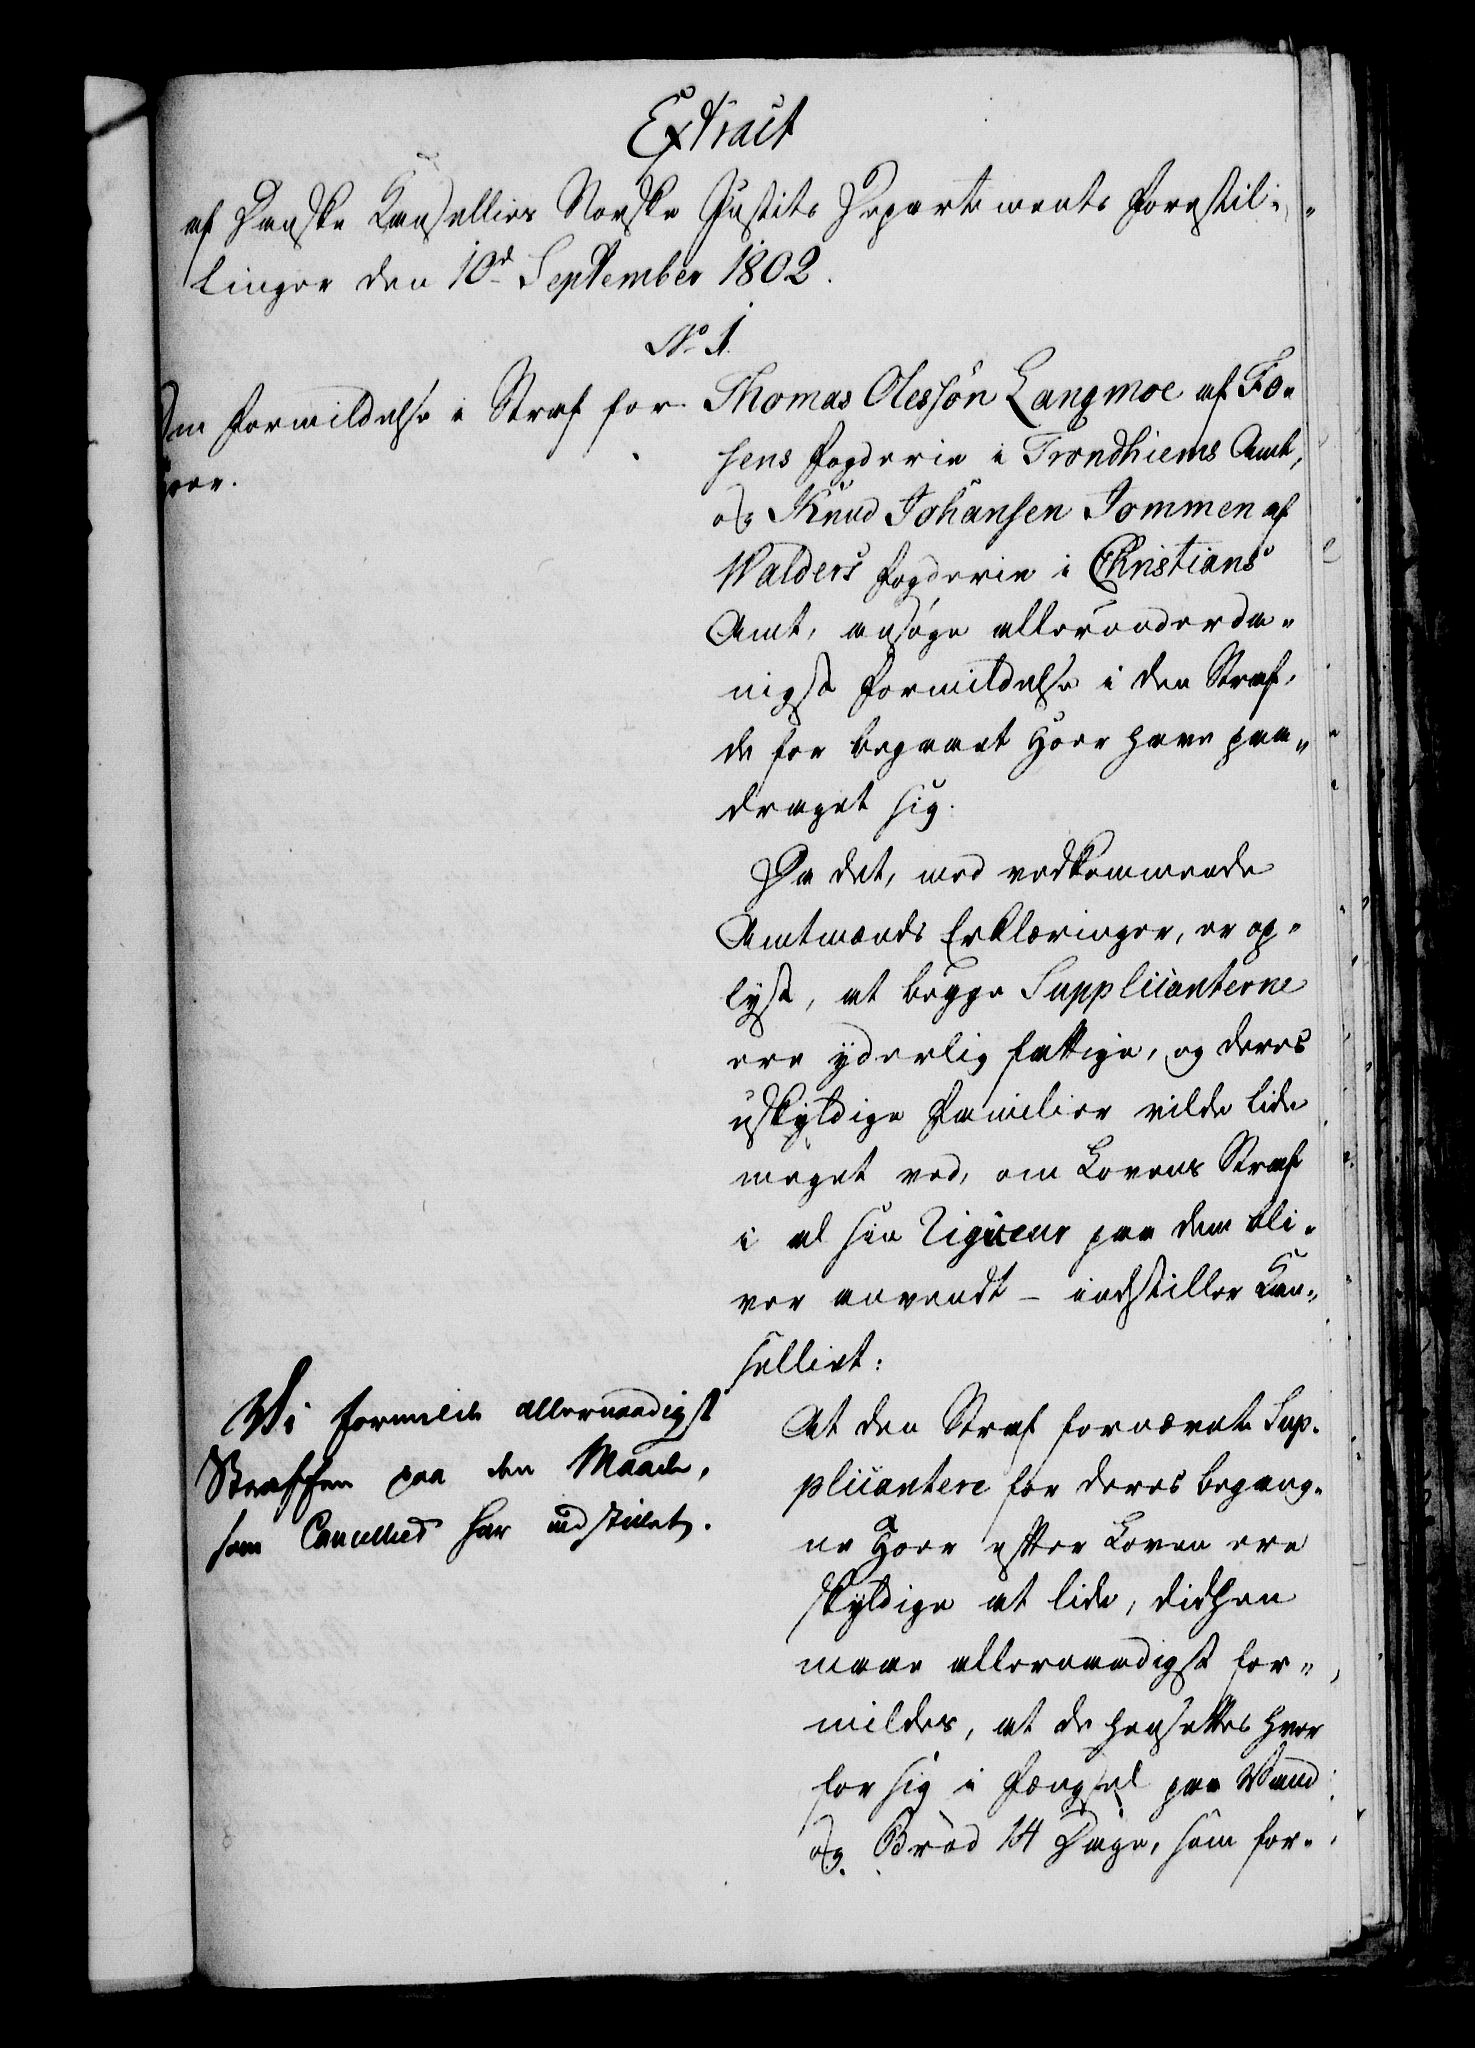 Extract
af Danske Kansellies Norske Justits Departements Forestil-
linger den 10d September 1802.
No 1.
Om Formildelse i Straf for
Hoer.
Thomas Olessøn Langmoe af Fo-
sens Fogderie i Trondhiems Amt,
og Knud Johansen Tommen af
Walders Fogderie i Christians
Amt, ansøge allerunderda-
nigst Formildelse i den Straf,
de for begaaet Hoer have paa-
draget sig.
Da det, med vedkommende
Amtmænds Erklæringer, er op-
lyst, at begge Supplicanterne
ere yderlig fattige, og deres
uskyldige Familier vilde lide
meget ved, om Lovens Straf
i al sin Rigueur paa dem bli-
ver anvendt - indstiller Kan-
selliet:
At den Straf fornævnte Sup-
plicantere for deres begang-
ne Hoer efter Loven ere
skyldige at lide, didhen
maae allernaadigst for-
mildes, at de hensættes hver
for sig i Fængsel paa Vand
og Brød 14 Dage, som for-
Wi formilde allernaadigst
Straffen paa den Maade,
som Cancelliet har indstillet.